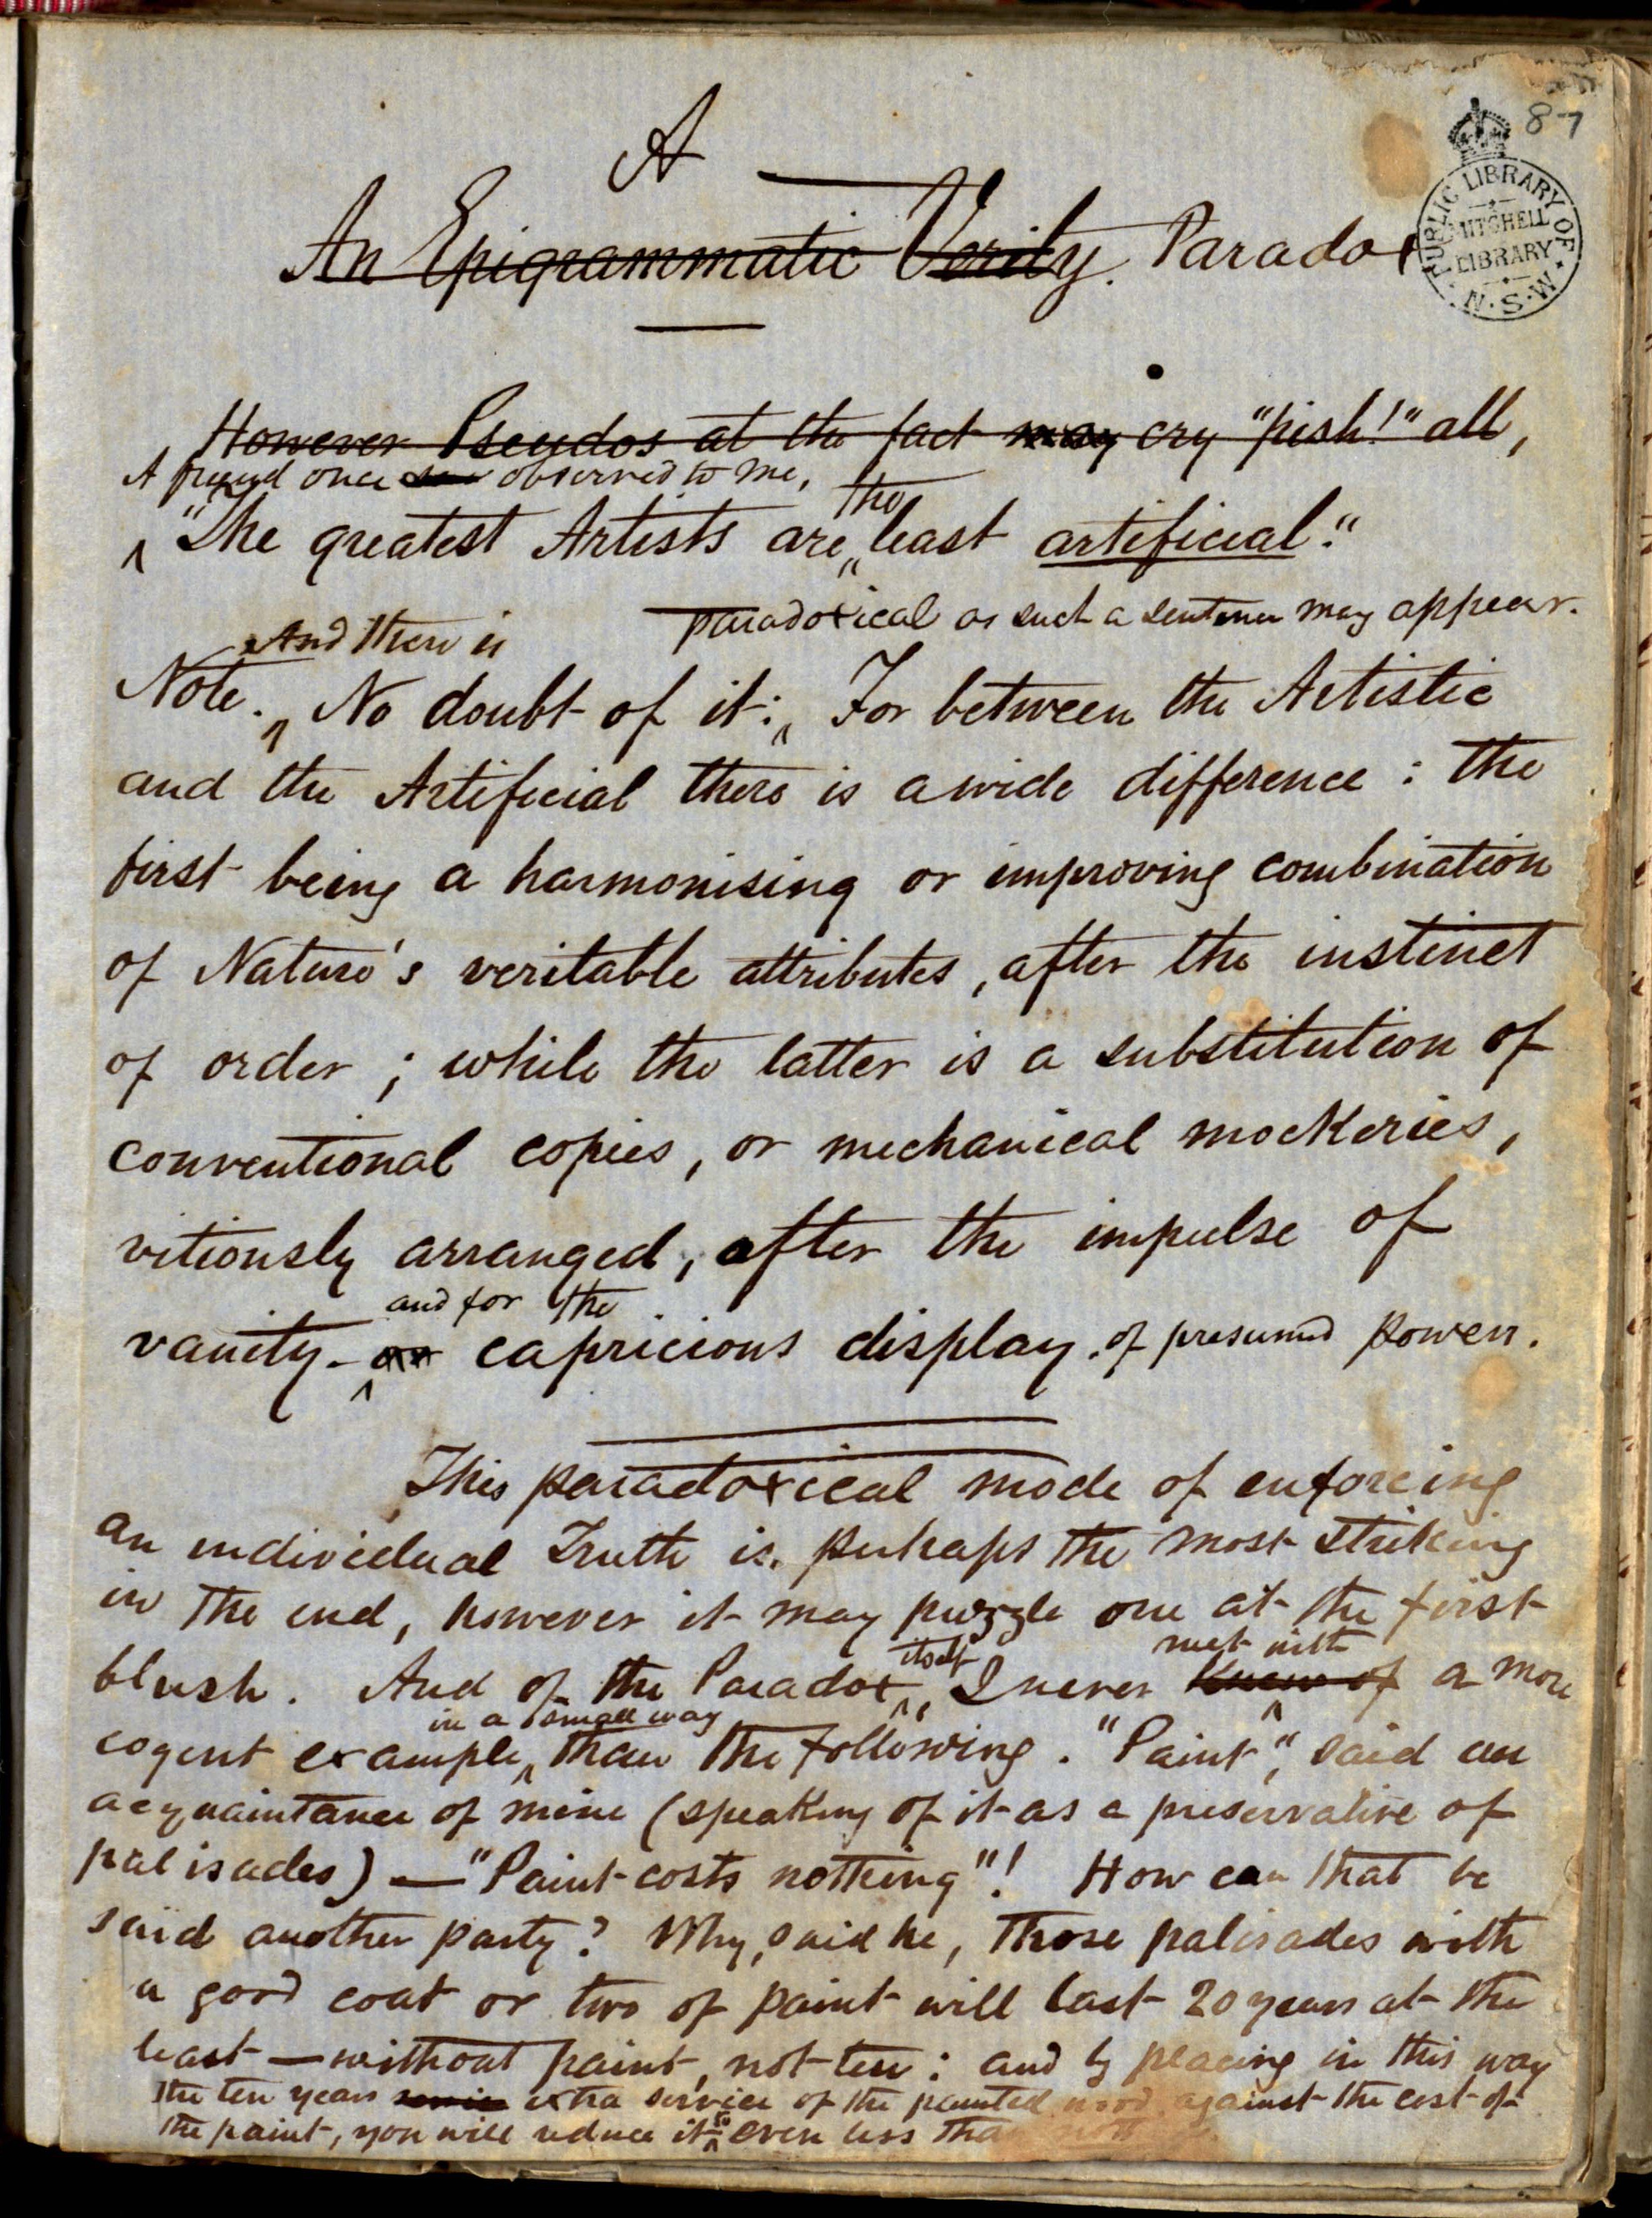 87
PUBLIC LIBRARY OF N.S.W.
MITCHELL LIBRARY
A
An Epigrammatic Verity. Paradox
However Pseudos at the fact may cry "pish!" all,
A friend once observed to me,
the
"The greatest Artists are least artificial."
And there is paradoxical as such a sentence may appear.
Note. No doubt of it: For between the Artistic
and the Artificial there is a wide difference : the
first being a harmonising or improving combination
of Nature's veritable attributes, after the instinct
of order ; while the latter is a substitution of
conventional copies, or mechanical mockeries,
vitiously arranged, after the impulse of
and for the
vanity - or capricious display. of presumed power.
This paradoxical mode of enforcing
an individual Truth is. perhaps the most striking
in the end, however it may puzzle one at the first
itself met with
blush. And of the Paradox, I never knew of a more
in a small way
cogent example, than the following. "Paint", said an
acquaintance of mine (speaking of it as a preservative of
palisades) — "Paint costs nothing"! How can that be
said another party? Why, said he, those palisades with
a good coat or two of paint will last 20 years at the
least — without paint, not ten : and by placing in this way
the ten years service extra service of the painted wood against the cost of
to
the paint, you will reduce it even less than